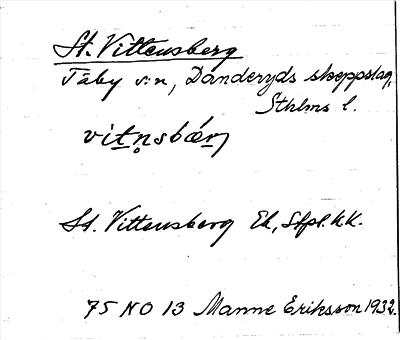 St. Vittensberg
Täby s:n, Danderyds skeppslag,
Sthlms l.
vitn̥sbærj
St. Vittensberg Ek, Stpl. KK.
75 NO 13 Manne Eriksson 1932.